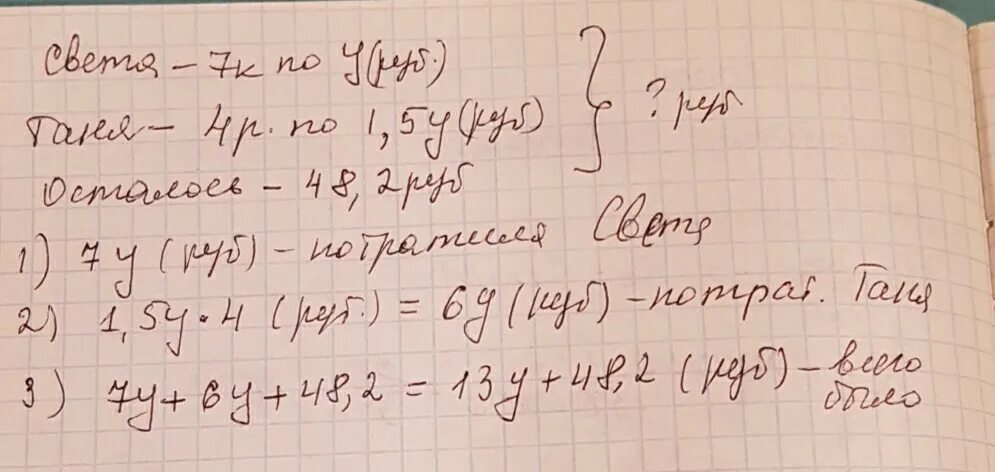 Света – 7к по у(руб.)
Таня – 4р. по 1,5у(руб) } ? руб
Осталось – 48,2руб
1) 7у (руб) – потратила Света
2) 1,5у·4 (руб.) = 6у (руб) – потрат. Таня
3) 7у + 6у + 48,2 = 13у + 48,2 (руб) – всего
было